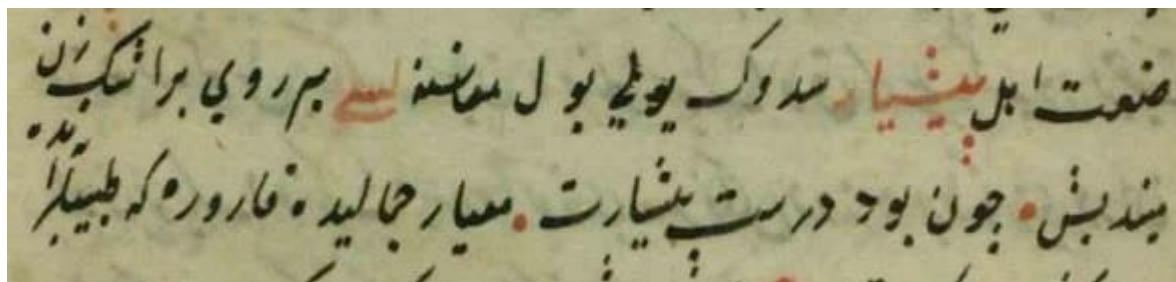 صنعت اهل پیشیار سدوک بولی بول معاسنه لسے بر روی براشک زن
بیندیش • چون بود درست پیشارت • معیار جمالیده قاروره که طبیبلرا یده